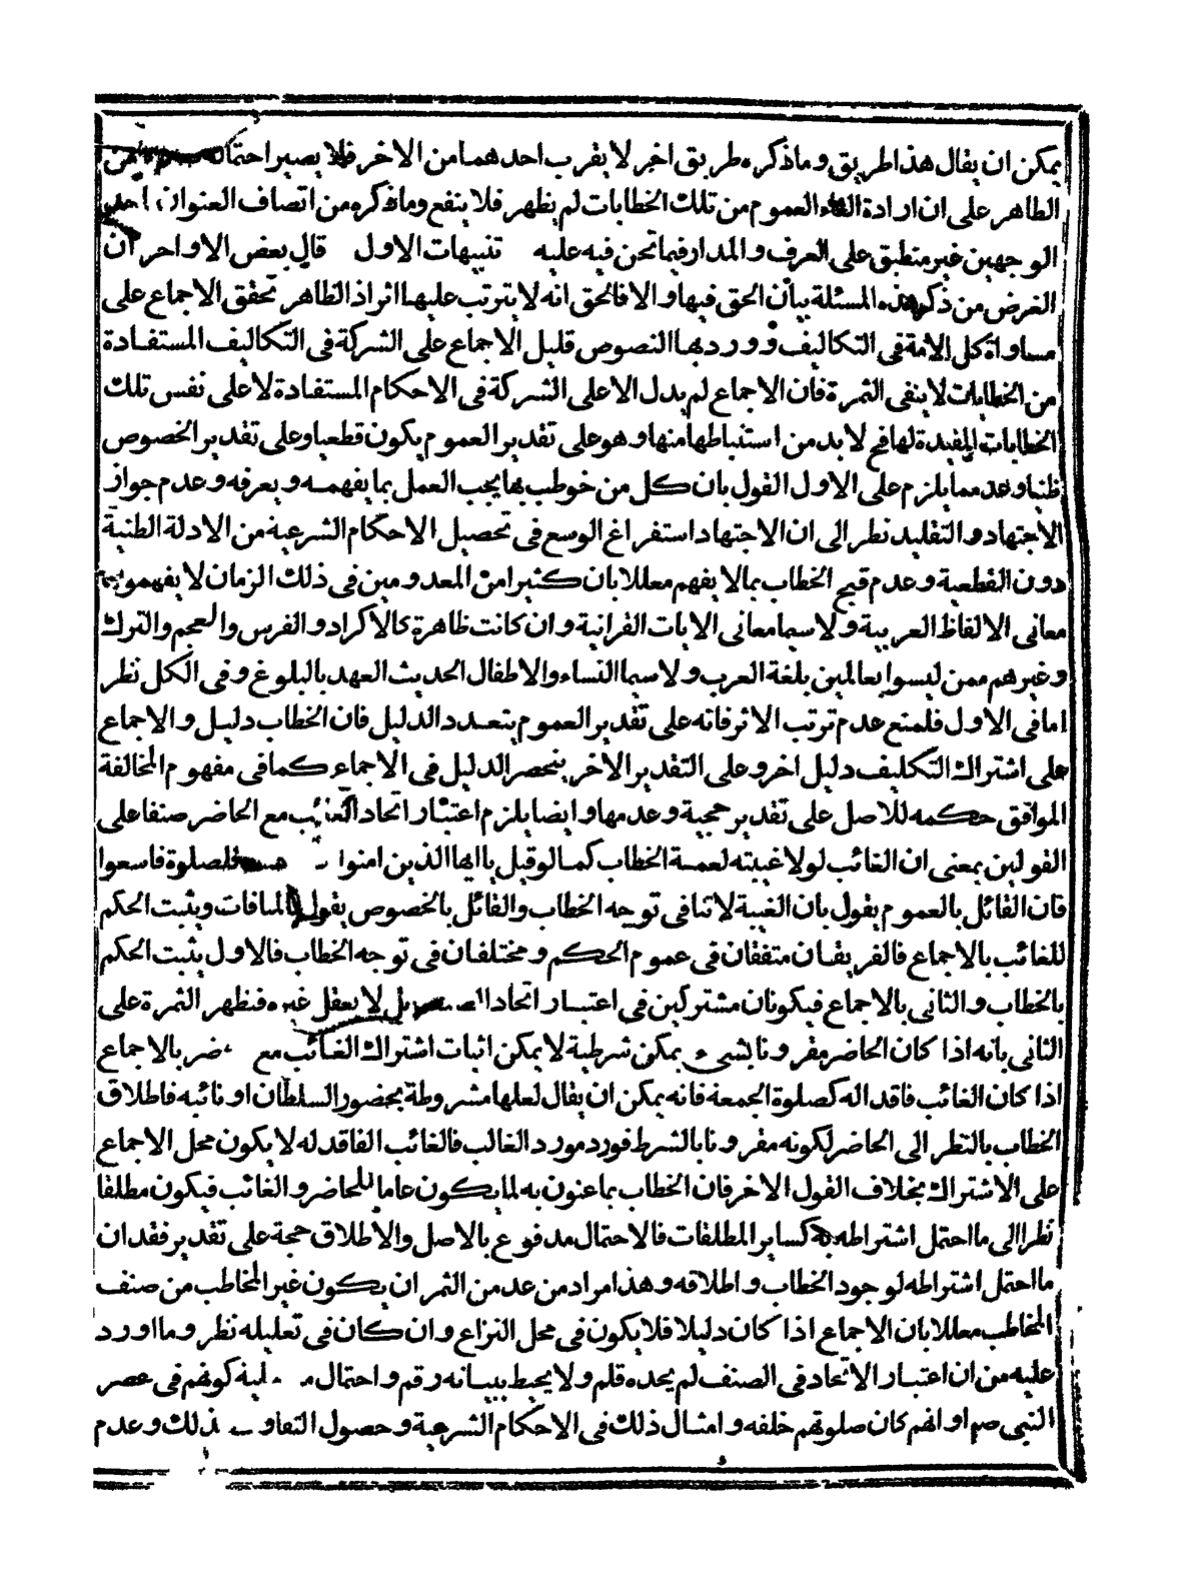 يمكن ان يقال هذا طريق وما ذكره طريق اخر لا يقرب احدهما من الاخر فلا يصير احتماله من
الظاهر على ان ارادة العموم من تلك الخطابات لم يظهر فلا ينفع وما ذكره من اتصاف العنوان احد
الوجهين غير منطبق على العرف والمدار فيما نحن فيه عليه تنبيهات الاول قال بعض الاواخر ان
الغرض من ذكر هذه المسئلة بيان الحق فيها والا فالحق انه لا يترتب عليها اثر اذ الظاهر تحقق الاجماع على
مساواة كل الامة فى التكاليف وورد بها النصوص قليل الاجماع على الشركة فى التكاليف المستفادة
من الخطابات لا ينفى الثمرة فان الاجماع لم يدل الا على الشركة فى الاحكام المستفادة لا على نفس تلك
الخطابات المفيدة لها فح لا بد من استنباطها منها وهو على تقدير العموم يكون قطعيا وعلى تقدير الخصوص
ظنيا وعد مما يلزم على الاول القول بان كل من خوطب بها يجب العمل بما يفهمه ويعرفه وعدم جواز
الاجتهاد والتقليد نظر الى ان الاجتهاد استفراغ الوسع فى تحصيل الاحكام الشرعية من الادلة الظنية
دون القطعية وعدم قبح الخطاب بما لا يفهم معللا بان كثيرا من المعدومين فى ذلك الزمان لا يفهمون
معانى الالفاظ العربية ولا سيما معانى الايات القرانية وان كانت ظاهرة كالاكراد والفرس والعجم والترك
وغيرهم ممن ليسوا بعالمين بلغة العرب ولا سيما النساء والاطفال الحديث العهد بالبلوغ وفى الكل نظر
اما فى الاول فلمنع عدم ترتب الاثر فانه على تقدير العموم يتعدد الدليل فان الخطاب دليل والاجماع
على اشتراك التكليف دليل اخر وعلى التقدير الاخر ينحصر الدليل فى الاجماع كما فى مفهوم المخالفة
الموافق حكمه للاصل على تقدير حجية وعدمها وايضا يلزم اعتبار اتحاد الغائب مع الحاضر صنفا على
القولين بمعنى ان الغائب لولا غيبته لعمه الخطاب كما لو قيل يا ايها الذين امنوا للصلوة فاسعوا
فان القائل بالعموم يقول بان الغيبة لا تنافى توجه الخطاب والقائل بالخصوص يقول بالمنافات ويثبت الحكم
للغائب بالاجماع فالفريقان متفقان فى عموم الحكم ومختلفان فى توجه الخطاب فالاول يثبت الحكم
بالخطاب والثانى بالاجماع فيكونان مشتركين فى اعتبار اتحاد بل لا يعقل غيره فتظهر الثمرة على
الثانى بانه اذا كان الحاضر مقرونا بشىء يمكن شرطية لا يمكن اثبات اشتراك الغائب مع بالاجماع
اذا كان الغائب فاقدا له كصلوة الجمعة فانه يمكن ان يقال لعلها مشروطة بحضور السلطان او نائبه فاطلاق
الخطاب بالنظر الى الحاضر لكونه مقرونا بالشرط فورد مورد الغالب فالغائب الفاقد له لا يكون محل الاجماع
على الاشتراك بخلاف القول الاخر فان الخطاب بما عنون به لما يكون عاما للحاضر والغائب فيكون مطلقا
نظرا الى ما احتمل اشتراطه به كساير المطلقات فالاحتمال مدفوع بالاصل والاطلاق حجة على تقدير فقدان
ما احتمل اشتراطه لوجود الخطاب واطلاقه وهذا مراد من عد من الثمر ان يكون غير المخاطب من صنف
المخاطب معللا بان الاجماع اذا كان دليلا فلا يكون فى محل النزاع وان كان فى تعليله نظر وما اورد
عليه من ان اعتبار الاتحاد فى الصنف لم يحده قلم ولا يحيط ببيانه رقم واحتمال كونهم فى عصر
النبى صم او انهم كان صلوتهم خلفه وامثال ذلك فى الاحكام الشرعية وحصول ذلك وعدم